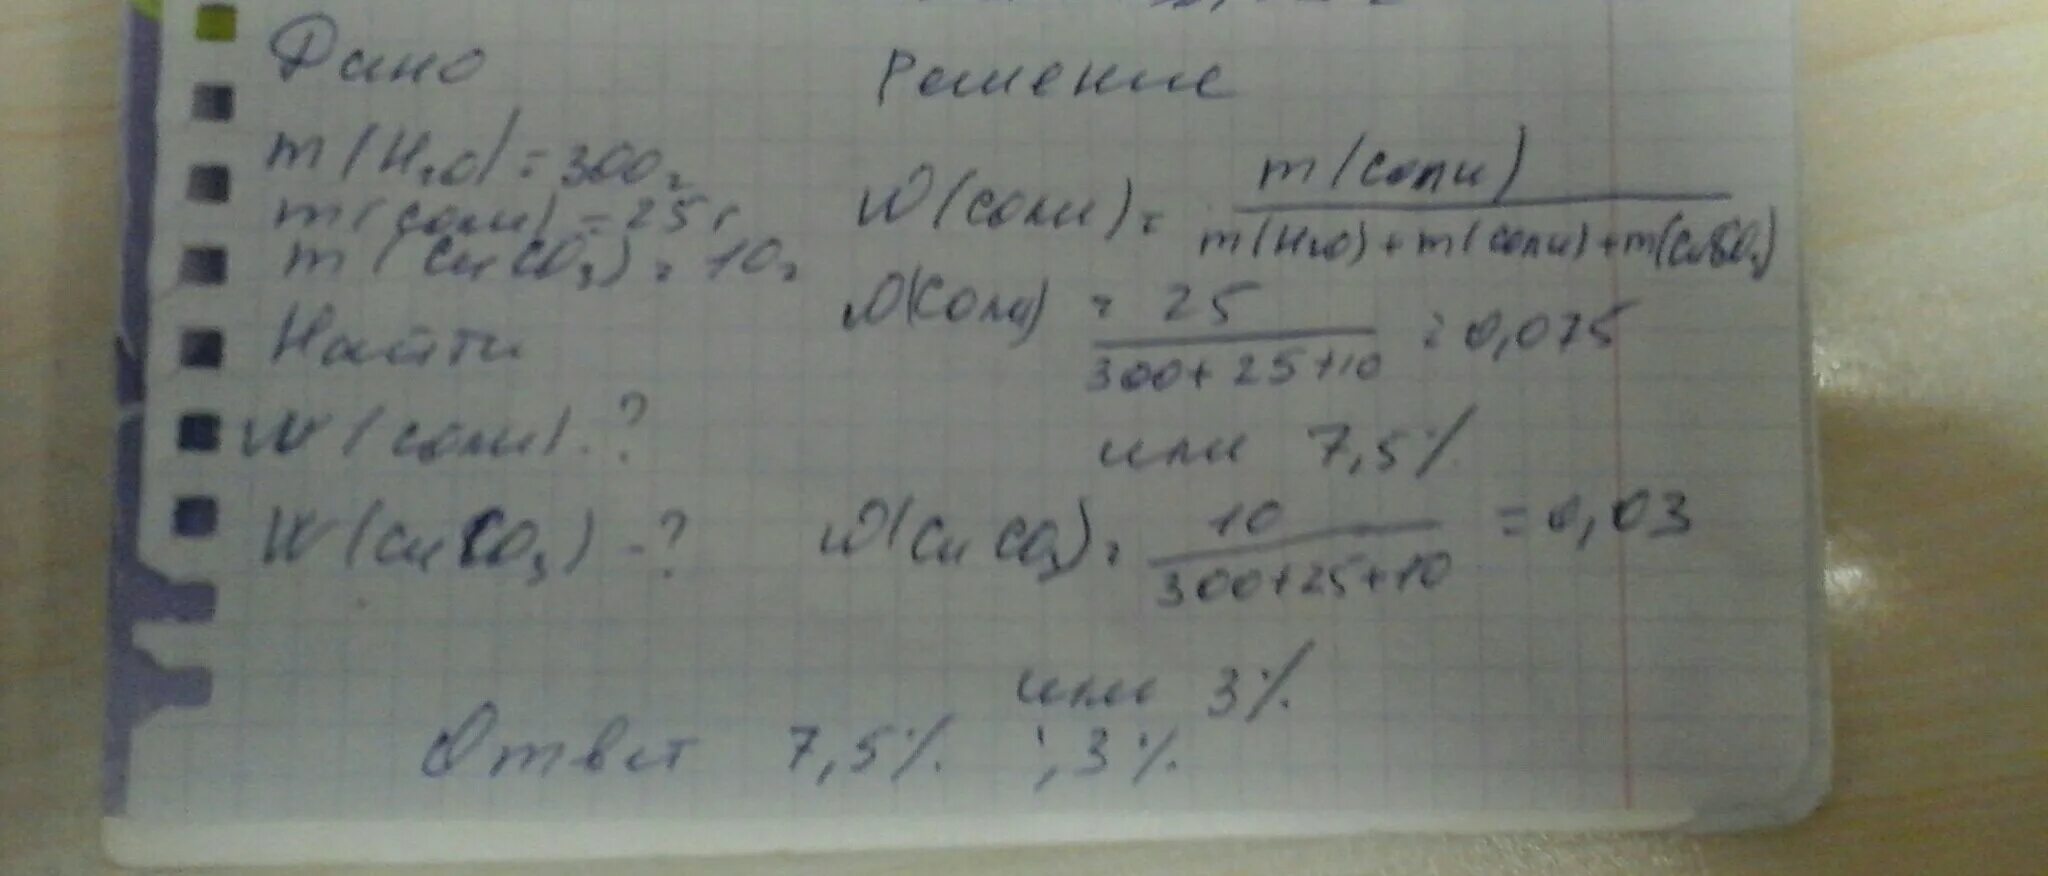 Дано
m(H₂O) = 300г
m(соли) = 25г
m(CuCO₃) = 10г
Найти
W(соли) - ?
W(CuCO₃) - ?
Решение
W(соли) = m(соли) / m(H₂O) + m(соли) + m(CuCO₃)
W(соли) = 25 / 300 + 25 + 10 = 0,075
или 7,5%
W(CuCO₃) = 10 / 300+25+10 = 0,03
или 3%
Ответ 7,5% ; 3%